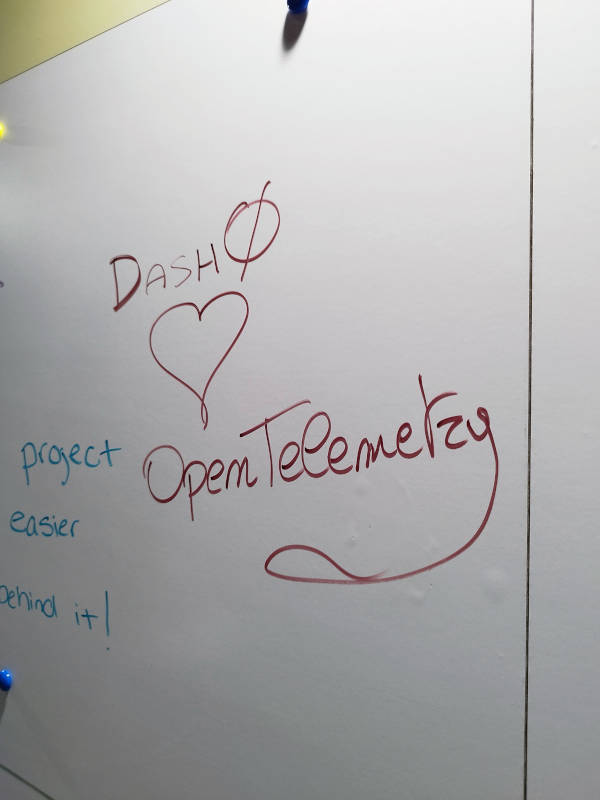 DASHØ
OpenTelemetry
project
easier
behind it!